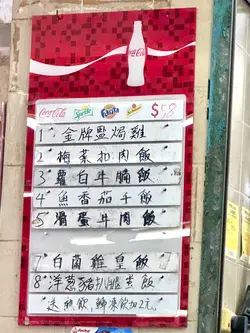 Coca-Cola
Coca-Cola Sprite Fanta $58
1 金牌鹽焗雞
2 梅菜扣肉飯
3 蘿白牛腩飯
4 魚香茄子飯
5 滑蛋牛肉飯
7 白菌雞皇飯
8 洋葱豬扒飯
送熱飲 轉凍飲加2元